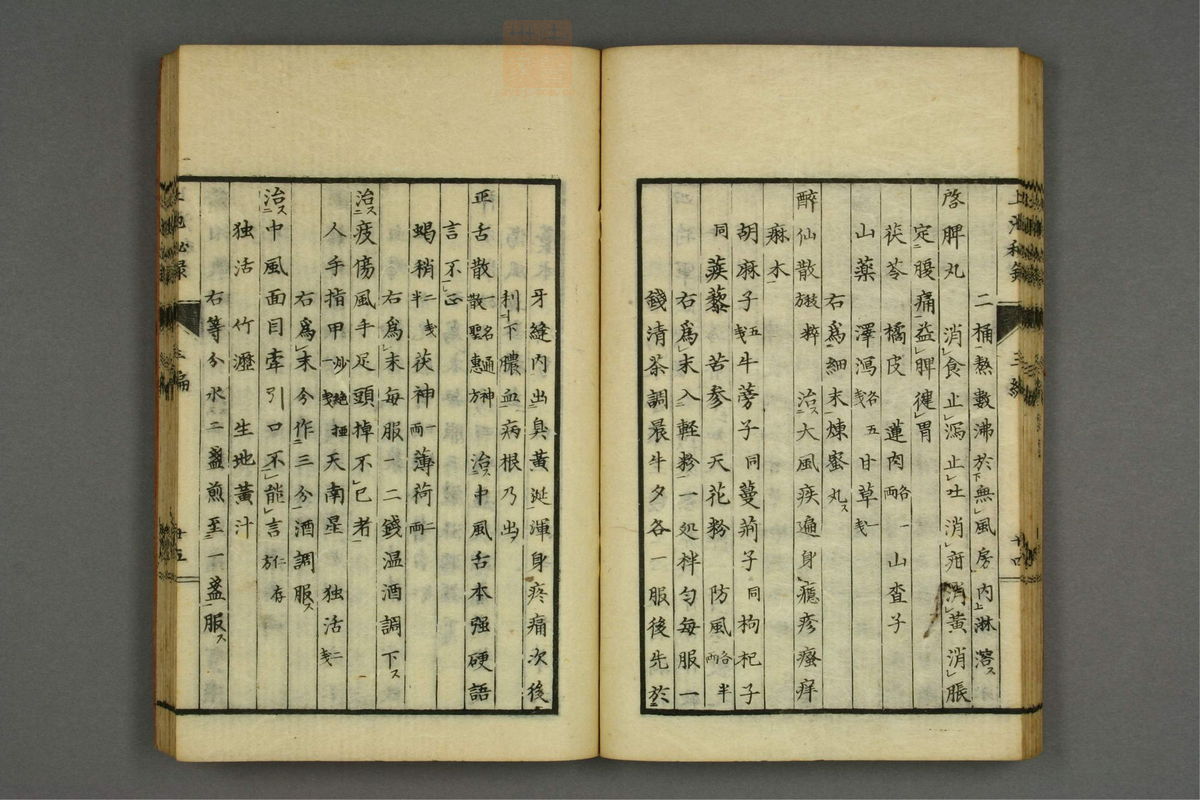 二桶熱數沸於無風房內淋溶ス
啓脾丸　消食止瀉止吐消疳消黃消脹
定腹痛益脾健胃
茯苓　橘皮　蓮肉各一兩　山査子
山藥　澤瀉各五戔　甘草一戔
右爲細末煉蜜丸ス
醉仙散　旅粹　治大風疾遍身癮疹瘙痒
麻木
胡麻子五戔　牛蒡子同　蔓荊子同　枸杞子
同　蒺藜　苦參　天花粉　防風各半兩
右爲末入輕粉一処拌匀每服一
錢清茶調晨午夕各一服後先於
牙縫内出臭黃涎渾身疼痛次後
利下膿血病根乃出
正舌散　一名通神散　聖惠方　治中風舌本强硬語
言不正
蝎梢二戔半　茯神一兩　薄荷二兩
右爲末每服二錢温酒調下ス
治疲傷風手足頭掉不已者
人手指甲一戔　炒絶　天南星　独活二戔
右爲末分作三分酒調服ス
治中風面目牽引口不能言　仁存方
独活　竹瀝　生地黃汁
右等分水二盞煎至一盞服ス
三編
十四
三編
十五